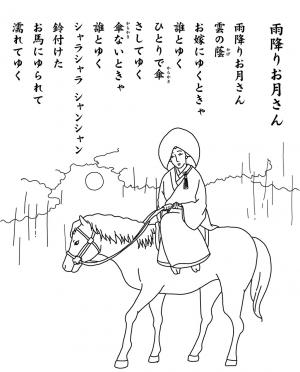 雨降りお月さん
雨降りお月さん
雲の蔭
かげ
お嫁にゆくときゃ
誰とゆく
ひとりで傘
からかさ
さしてゆく
傘ないときゃ
からかさ
誰とゆく
シャラシャラ シャンシャン
鈴付けた
お馬にゆられて
濡れてゆく